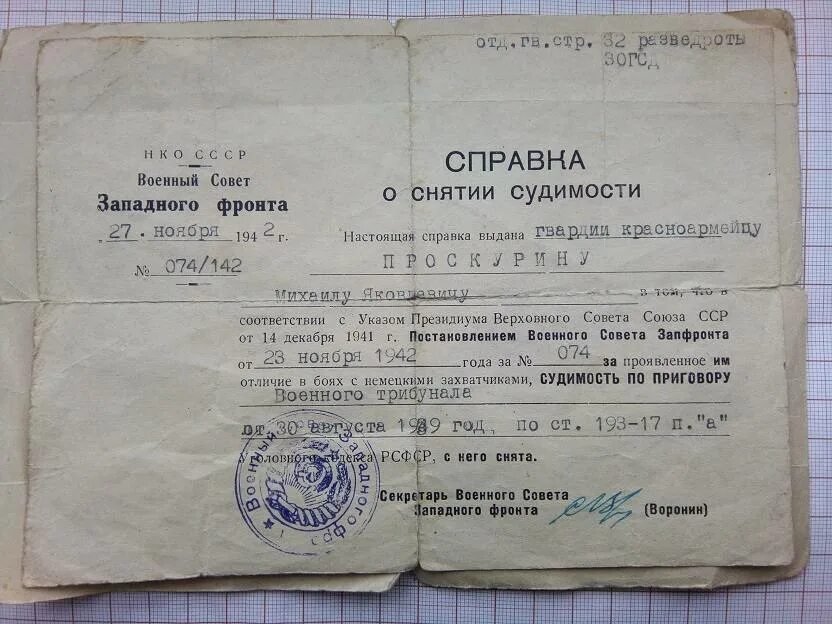 отд.гв.стр. 32 разведроты
30ГСД
НКО СССР
Военный Совет
Западного фронта
„ 27. ноября 1942 г.
№ 074/142
СПРАВКА
О СНЯТИИ СУДИМОСТИ
Настоящая справка выдана гвардии красноармейцу
ПРОСКУРИНУ
Михаилу Яковлевичу в том, что в
соответствии с Указом Президиума Верховного Совета Союза ССР
от 14 декабря 1941 г. Постановлением Военного Совета Запфронта
от 23 ноября 1942 года за № 074 за проявленное им
отличие в боях с немецкими захватчиками, СУДИМОСТЬ ПО ПРИГОВОРУ
Военного трибунала
от 30 августа 1939 год, по ст. 193-17 п."а"
Уголовного кодекса РСФСР, с него снята.
Секретарь Военного Совета
Западного фронта (Воронин)
Военный Западного